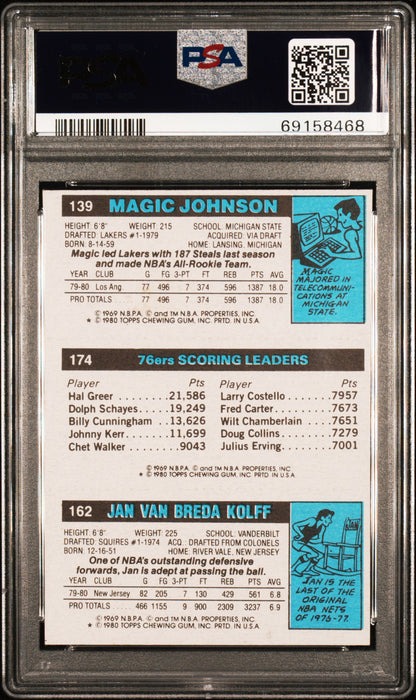 PSA
PSA
69158468
139 MAGIC JOHNSON
HEIGHT: 6'8" WEIGHT: 215 SCHOOL: MICHIGAN STATE
DRAFTED: LAKERS #1-1979 ACQUIRED: VIA DRAFT
BORN: 8-14-59 HOME: LANSING, MICHIGAN
Magic led Lakers with 187 Steals last season
and made NBA's All-Rookie Team.
YEAR CLUB G FG 3-PT FT REB PTS AVG
79-80 Los Ang. 77 496 7 374 596 1387 18.0
PRO TOTALS 77 496 7 374 596 1387 18.0
© 1969 N.B.P.A. © and TM N.B.A. PROPERTIES, INC.
★ © 1980 TOPPS CHEWING GUM, INC. PRTD. IN U.S.A.
MAGIC
MAJORED IN
TELECOMMUNI-
CATIONS AT
MICHIGAN
STATE.
174 76ers SCORING LEADERS
Player Pts Player Pts
Hal Greer .......21,586 Larry Costello ........7957
Dolph Schayes ....19,249 Fred Carter..........7673
Billy Cunningham ..13,626 Wilt Chamberlain ......7651
Johnny Kerr......11,699 Doug Collins .........7279
Chet Walker ......9043 Julius Erving.........7001
© 1969 N.B.P.A. © and TM N.B.A. PROPERTIES, INC.
★ © 1980 TOPPS CHEWING GUM, INC. PRTD. IN U.S.A.
162 JAN VAN BREDA KOLFF
HEIGHT: 6'8" WEIGHT: 225 SCHOOL: VANDERBILT
DRAFTED: SQUIRES #1-1974 ACQ.: DRAFTED FROM COLONELS
BORN: 12-16-51 HOME: RIVER VALE, NEW JERSEY
One of NBA's outstanding defensive
forwards, Jan is adept at passing the ball.
YEAR CLUB G FG 3-PT FT REB PTS AVG
79-80 New Jersey 82 205 7 130 429 561 6.8
PRO TOTALS ..... 466 1155 9 900 2309 3237 6.9
© 1969 N.B.P.A. © and TM N.B.A. PROPERTIES, INC.
★ © 1980 TOPPS CHEWING GUM, INC. PRTD. IN U.S.A.
JAN IS THE
LAST OF THE
ORIGINAL
NBA NETS
OF 1976-77.